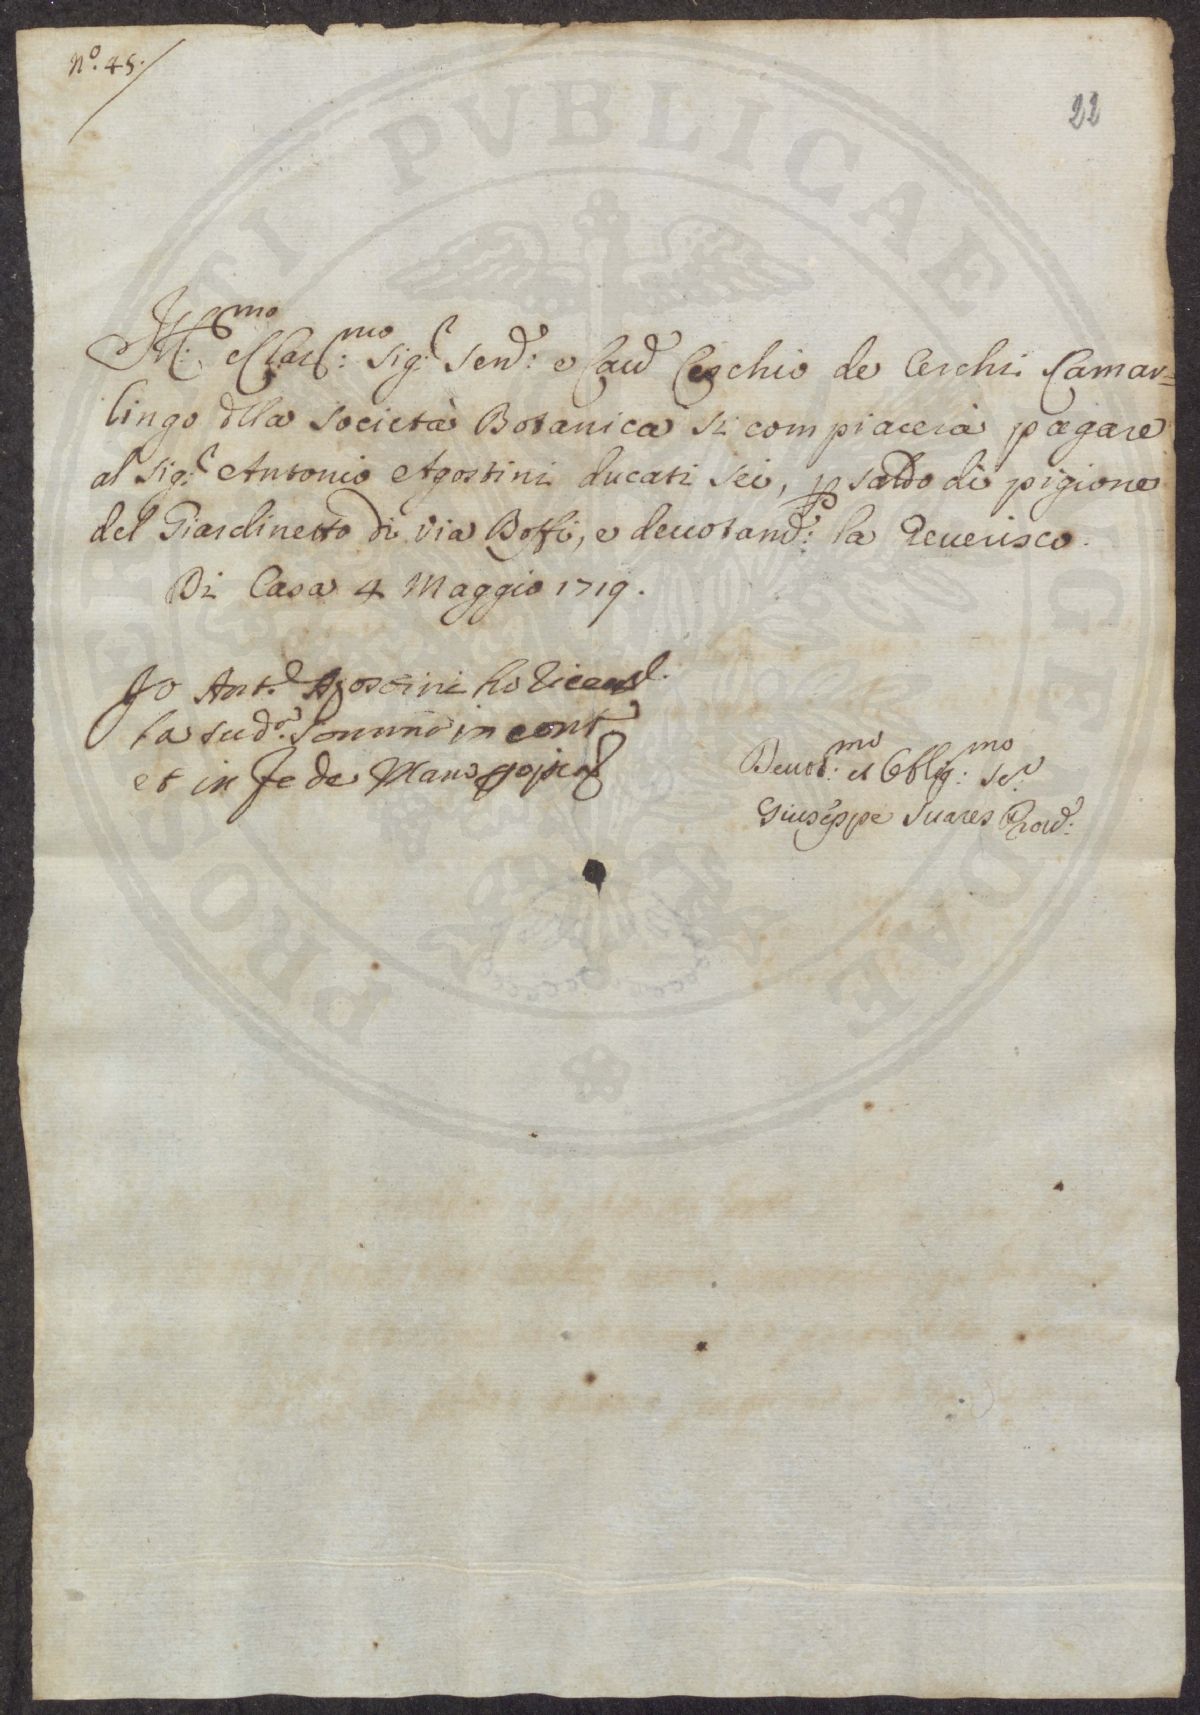 N.º 45.
22
Ill:mo e Clar:mo Sig.r Sen.r: e Cav.r Cerchio de Cerchi Camar=
lingo dlla Società Botanica si compiacerà pagare
al Sig.r Antonio Agostini ducati sei, p saldo di pigione
del Giardinetto di via Boffi, e deuotam.te: la Reuerisco.
Di Casa 4 Maggio 1719.
Jo Ant.o Agostini ho riceuto
la sud.a somma in cont
et in fede Mano ppia
Deuot:mo et Oblig:mo Se.r
Giuseppe Suares Prou.r:
PROPRIETATI PVBLICAE